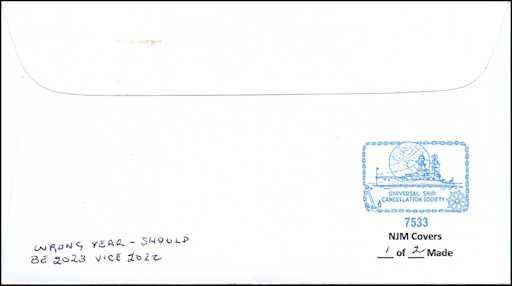 UNIVERSAL SHIP
CANCELLATION SOCIETY
7533
NJM Covers
1 of 2 Made
WRONG YEAR - SHOULD
BE 2023 VICE 2022